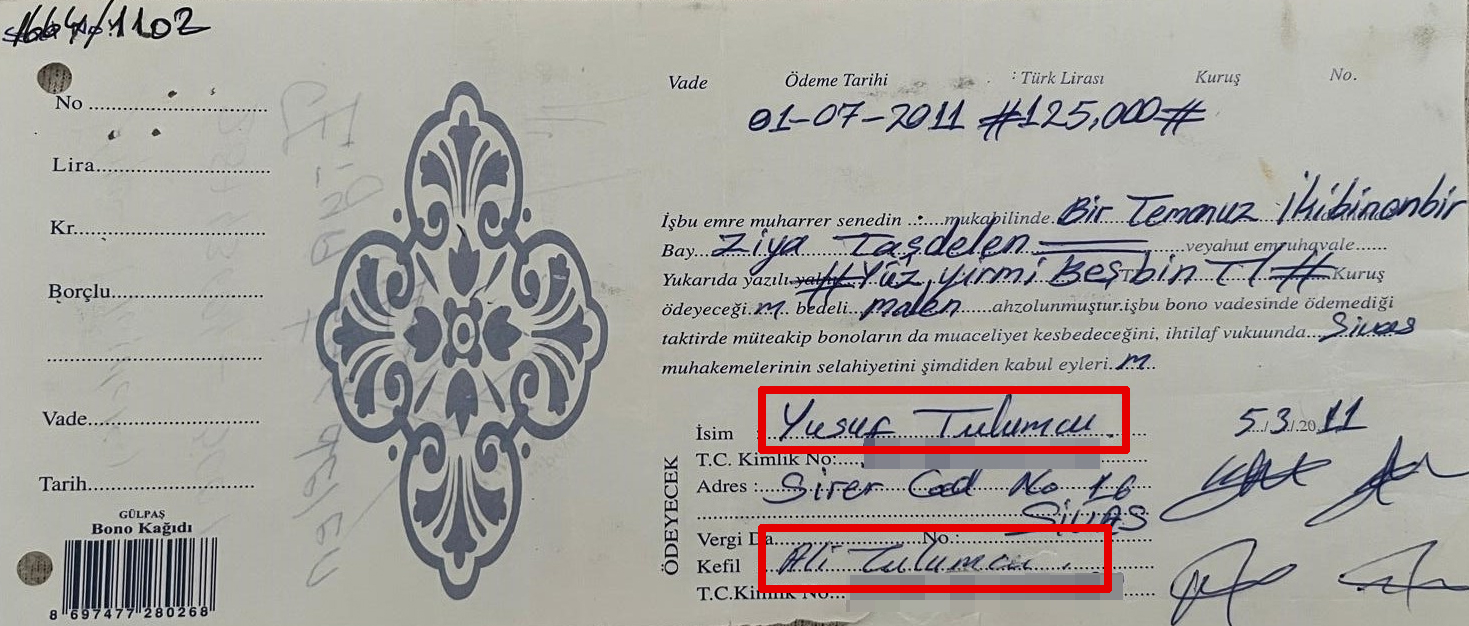 1664/1102
No
Lira
Kr.
Borçlu
Vade
Tarih
GÜLPAŞ
Bono Kağıdı
8 697477 280268
Vade Ödeme Tarihi Türk Lirası Kuruş No.
01-07-2011 #125,000#
İşbu emre muharrer senedin mukabilinde Bir Temmuz İkibinonbir
Bay Ziya Taşdelen veyahut emruhavale
Yukarıda yazılı yalnız #Yüz yirmi Beş bin Tl # Kuruş
ödeyeceği m. bedeli malen ahzolunmuştur.işbu bono vadesinde ödemediği
taktirde müteakip bonoların da muaceliyet kesbedeceğini, ihtilaf vukuunda Sivas
muhakemelerinin selahiyetini şimdiden kabul eyleri m
ÖDEYECEK
İsim : Yusuf Tulumcu. 5/3/2011
T.C. Kimlik No:
Adres : Sirer Cad No 16
SİVAS
Vergi Da No.:
Kefil Ali Tulumcu
T.C.Kimlik No